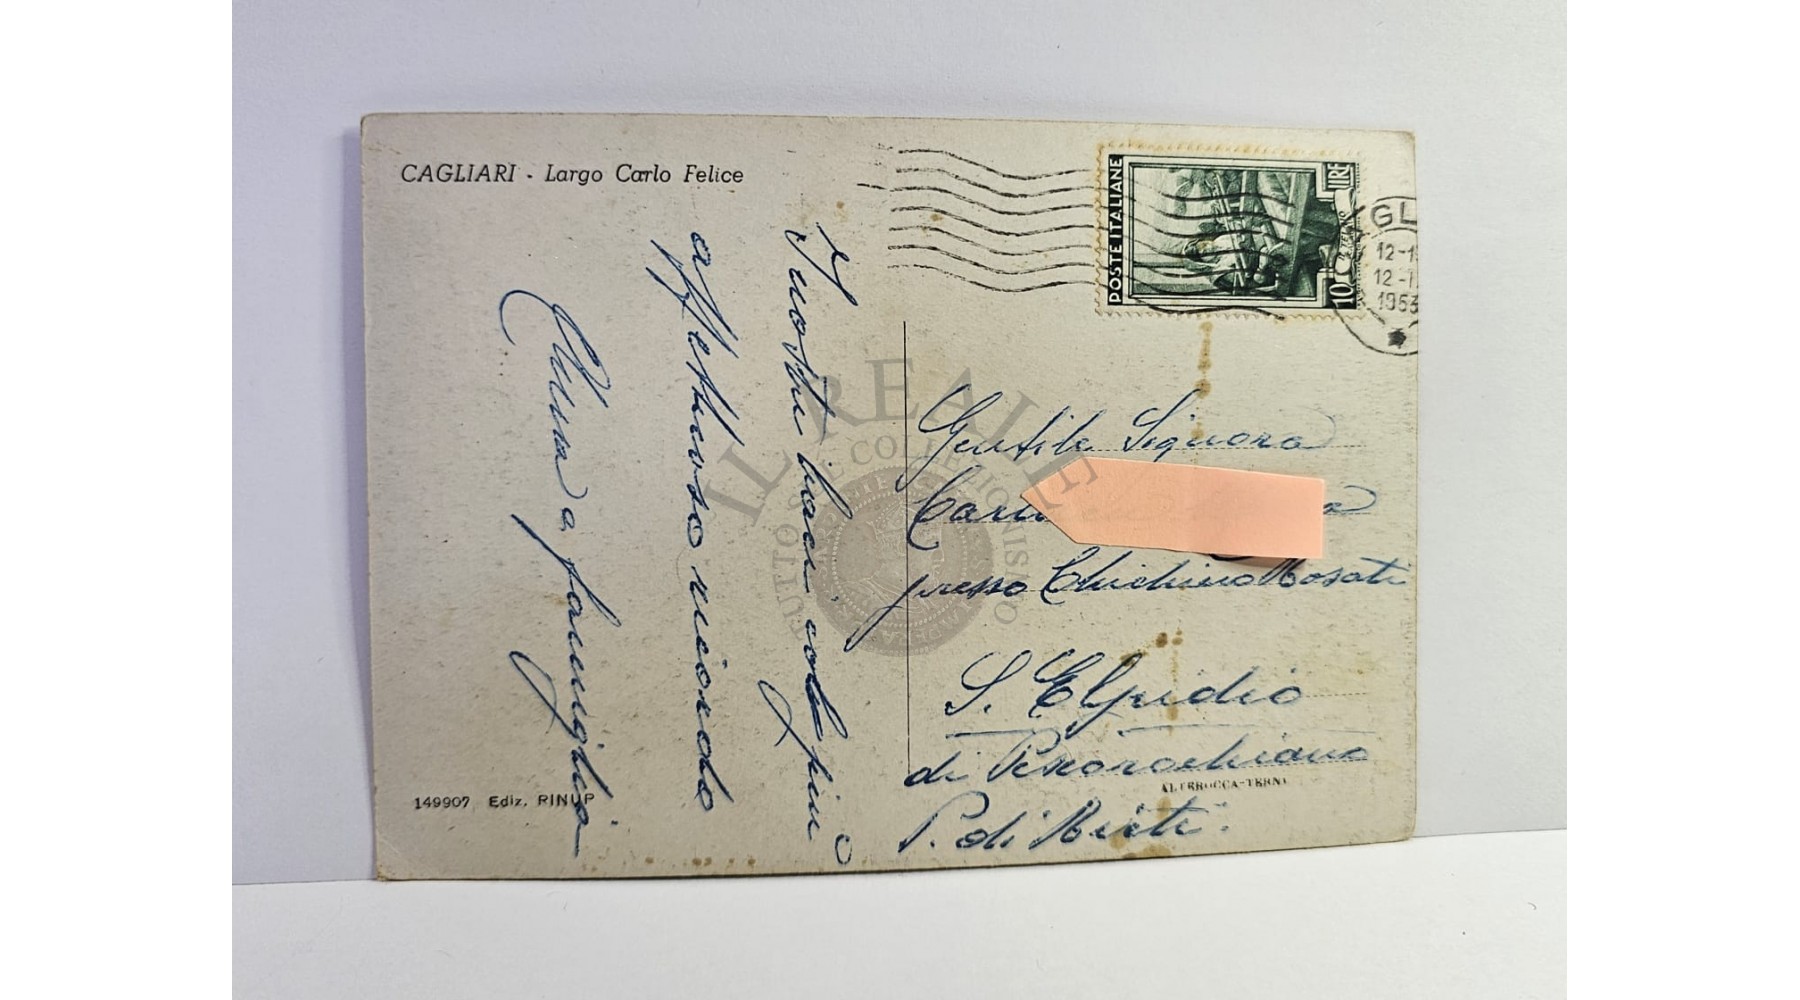 CAGLIARI - Largo Carlo Felice
I vostri baci colo più
affettuoso ricordo
Elvira e famiglia
149907 Ediz. RINUP
POSTE ITALIANE
LIRE
10
GL
12-1
12-1
1953
Gentile Signora
presso Chichino Rosati
S. Elpidio
di Pescorochiano
P. di Rieti.
ALTEROCCA-TERNI
IL REALE
TUTTO SUL COLLEZIONISMO